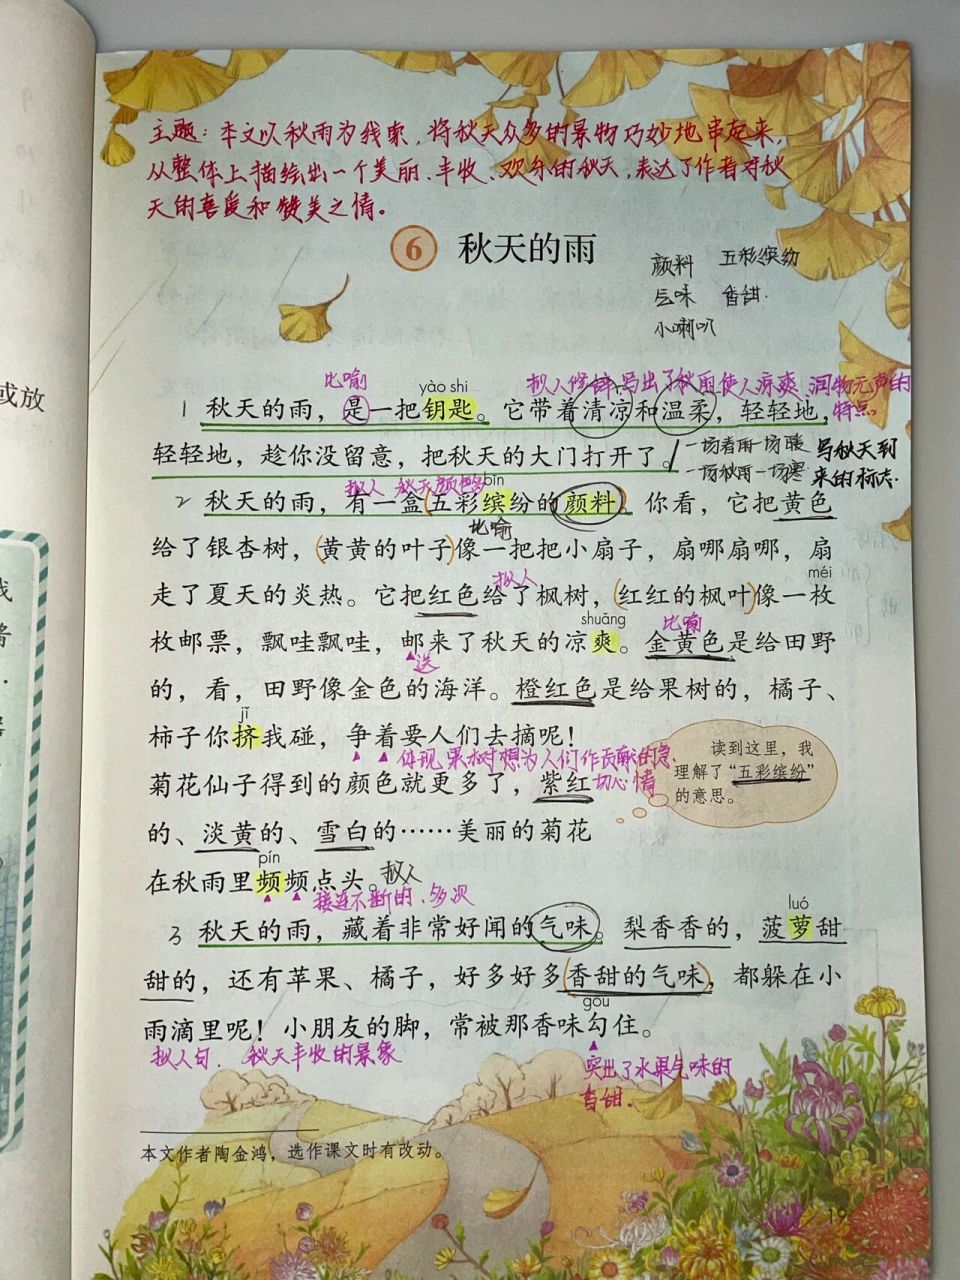 主题：本文以秋雨为线索，将秋天众多的景物巧妙地串起来，
从整体上描绘出一个美丽、丰收、欢乐的秋天，表达了作者对秋
天的喜爱和赞美之情。
6 秋天的雨
颜料 五彩缤纷
气味 香甜.
小喇叭
比喻
拟人修辞,写出了秋雨使人凉爽、润物无声的
特点。
yào shi
1 秋天的雨，是一把钥匙。它带着清凉和温柔，轻轻地，
轻轻地，趁你没留意，把秋天的大门打开了。
一场春雨一场暖
一场秋雨一场寒
写秋天到
来的标志.
拟人 秋天颜色多
bīn
2 秋天的雨，有一盒五彩缤纷的颜料。你看，它把黄色
比喻
给了银杏树，黄黄的叶子像一把把小扇子，扇哪扇哪，扇
拟人
méi
走了夏天的炎热。它把红色给了枫树，红红的枫叶像一枚
shuǎng
比喻
枚邮票，飘哇飘哇，邮来了秋天的凉爽。金黄色是给田野
送
的，看，田野像金色的海洋。橙红色是给果树的，橘子、
jǐ
柿子你挤我碰，争着要人们去摘呢！
体现果树想为人们作贡献的急
切心情
菊花仙子得到的颜色就更多了，紫红
的、淡黄的、雪白的……美丽的菊花
pín
在秋雨里频频点头。拟人
接连不断的、多次
读到这里，我
理解了“五彩缤纷”
的意思。
luó
3 秋天的雨，藏着非常好闻的气味。梨香香的，菠萝甜
甜的，还有苹果、橘子，好多好多香甜的气味，都躲在小
gōu
雨滴里呢！小朋友的脚，常被那香味勾住。
拟人句. 秋天丰收的景象
突出了水果气味的
香甜.
本文作者陶金鸿，选作课文时有改动。
19
或放